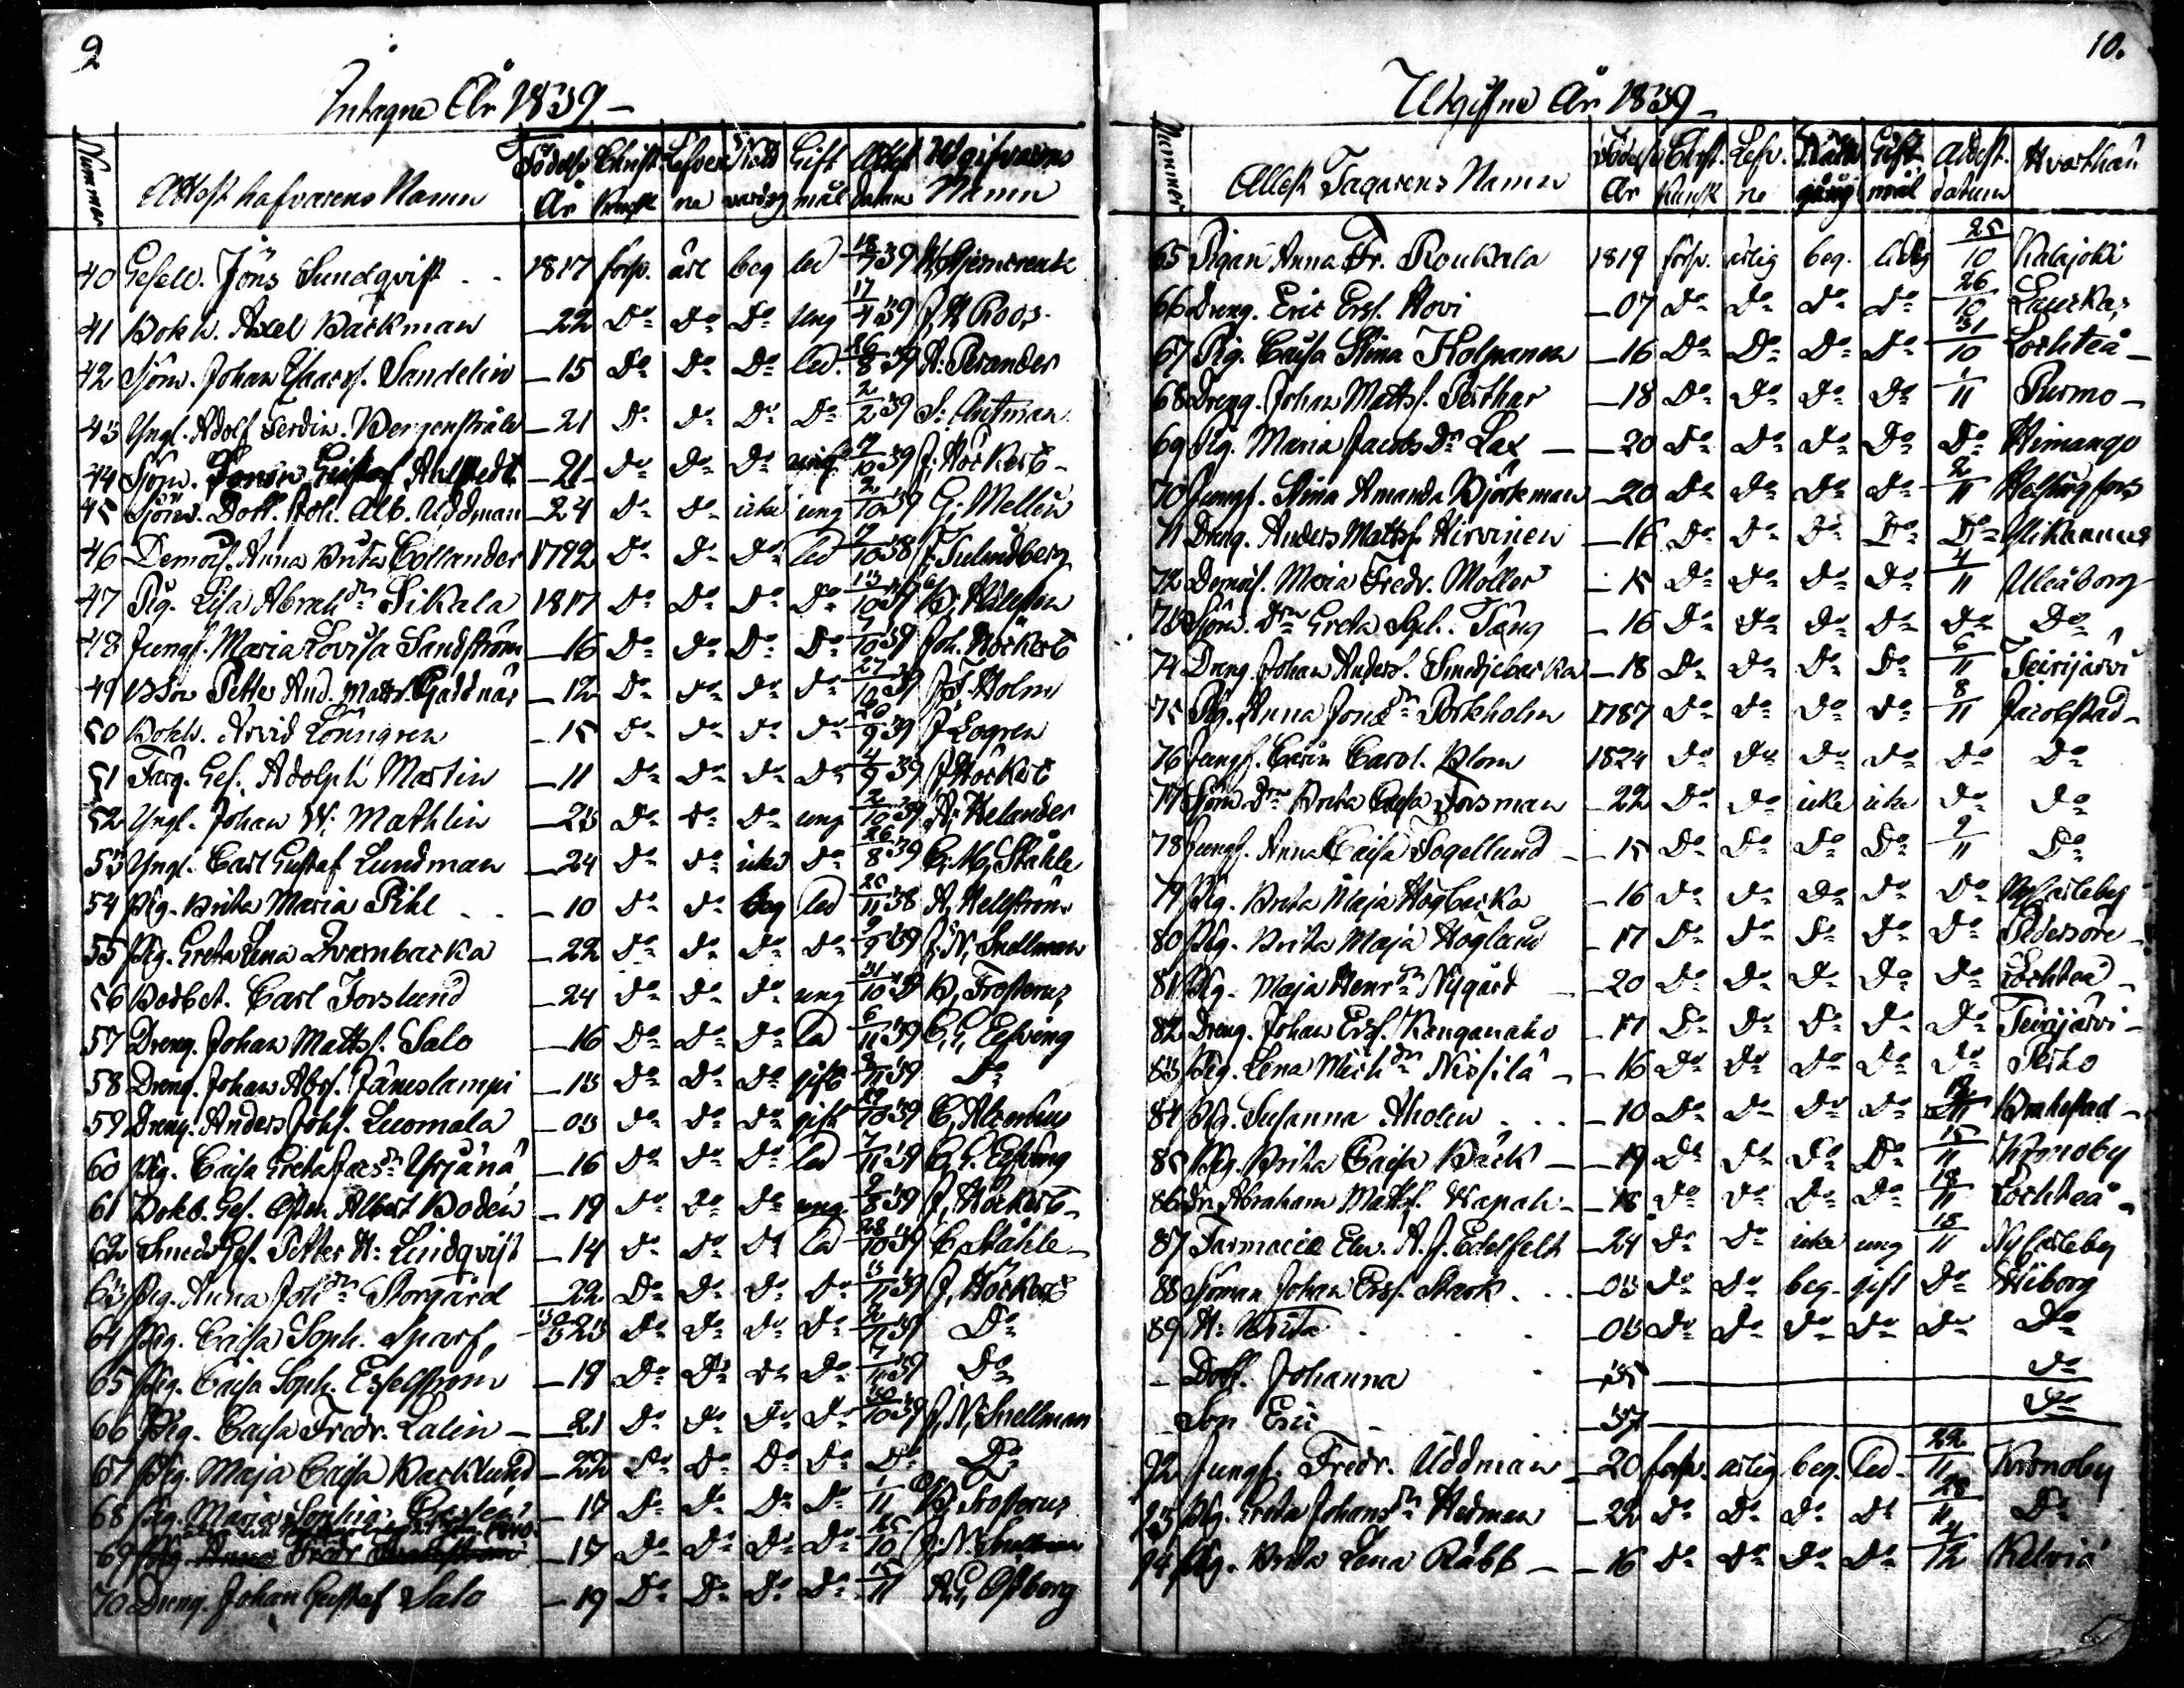 9
Intagne År 1839 –
Nummer Attest hafvarens Namn Födelse År Christ. Kunsk Lefver ne Natt vardsg Gift mål Attest Datum Utgifvarens Namn
40 Gesell. Jöns Sundqvist 1817 försv. ärl beg led 18/7 39
41 Bokh. Axel Backman – 22 Do Do Do ung 17/4 39 J. H. Roos
42 Sjöm. Johan Isaacss. Sandelin – 15 Do Do Do led. 26/8 39 A. Perander
43 Yngl. Adolf Ferdin. Bergenstråle – 21 Do Do Do Do 2/2 39 S. Antman
44 Sjöm. Gustaf Ahlstedt – 21 Do Do Do ung 19/10 39 J. Höckert –
45 Sjöm. Dott. Joh. Alb. Uddman – 24 Do Do icke ung 2/10 39 G. Mellin
46 Demois. Anna Brita Collander 1792 Do Do Do led 19/10 38
47 Pig. Lisa Abrah. dr Sikala 1817 Do Do Do Do 13/10 39
48 Jungf. Maria Lovisa Sandström – 16 Do Do Do Do 7/10 39 Joh. Höckert
49 Petter And. Matts. Gäddnäs – 12 Do Do Do Do 27/10 39 J. F. Holm
50 Bokh. Arvid Lönngren – 15 Do Do Do Do 20/9 39 J Logren
51 Färg. Ges. Adolph Martin – 11 Do Do Do Do 4/9 39 J Höckert
52 Yngl. Johan W. Mathlin – 23 Do Do Do ung 2/10 39 A. Helander
53 Yngl. Carl Gustaf Lundman – 24 Do Do icke Do 26/8 39 C. M. Ståhle
54 Pig. Brita Maria Pihl – 10 Do Do beg led 20/11 38 A. Hellström
55 Pig. Greta Lena Qvarnbacka – 22 Do Do Do Do 9/9 39 J. N. Snellman
56 Carl Forslund – 24 Do Do Do ung 31/10 39 B. Frosterus
57 Dreng. Johan Mattss. Salo – 16 Do Do Do led 6/11 39 C. G. Elfving
58 Dreng. Johan Abrss. Jäneslampi – 13 Do Do Do gift 8/11 39 Do
59 Dreng. Anders Johss. Luomala – 03 Do Do Do gift 29/10 39 C. Alcenius
60 Pig. Caisa Greta Jacs. dr Yrjänä – 16 Do Do Do led 7/11 39 C. G. Elfving
61 Bokb. Ges. Albert Bodén – 19 Do Do Do ung 9/8 39 J. Höckert –
62 Smeds Ges. Petter H. Lindqvist – 14 Do Do Do led 28/10 39 C. Ståhle –
63 Pig. Anna Joh. dr Storgård – 22 Do Do Do Do 13/11 39 J. Höckert
64 Pig. Caisa Soph. Sparf 23 Do Do Do Do 2/11 39 Do
65 Pig. Caisa Soph. Esselström – 18 Do Do Do Do 7/11 39 Do
66 Pig. Caisa Fredr. Lalin – – 21 Do Do Do Do 30/10 39 J. N. Snellman
67 Pig. Maja Caisa Backlund – 22 Do Do Do Do Do Do
68 Pig. Maria Sophia – 17 Do Do Do Do 1/11 B. Frosterus
69 Pig. Anna Fredr – 17 Do Do Do Do 25/10 J. N. Snellman
70 Dreng. Johan Gustaf Salo – 19 Do Do Do Do 15/11 A. G. Östberg
10.
Utgifne År 1839 –
Nummer Attest Tagarens Namn Födelse År Christ. Kunsk Lefv. ne Nattv. gång Gift mål Attest. datum Hvarthän
65 Pigan Anna Fr. Roukala 1819 försv. ärlig beg. ledig 25/10 Kalajoki
66 Dreng. Eric Erss. Hovi – 07 Do Do Do Do 26/10 Laukas
67 Pig. Caisa Stina Holpanen – 16 Do Do Do Do 31/10 Lochteå –
68 Dreng. Johan Mattss. Pesthar – 18 Do Do Do Do 1/11 Purmo –
69 Pig. Maria Jacobs Dr Lax – – 20 Do Do Do Do Do Himango
70 Jungf. Stina Amanda Björkman – 20 Do Do Do Do 2/11 Helsingfors
71 Dreng. Anders Mattss Hirvinen – 16 Do Do Do Do Do Ylikannus
72 Demois. Maria Fredr. Möller – 15 Do Do Do Do 4/11 Uleåborg
73 Sjöm. Dr Greta Soph. Tång – 16 Do Do Do Do Do Do
74 Dreng Johan Anderss. Smedjebacka – 18 Do Do Do Do 6/11 Teirijärvi
75 Pig. Anna Jons dr Porkholm 1787 Do Do Do Do 8/11 Jacobstad –
76 Jungf. Carin Carol. Blom 1824 Do Do Do Do Do Do
77 Sjöm. Dr Brita Caisa Forsman – 22 Do Do icke icke Do Do
78 Jungf. Anna Caisa Fogellund – 15 Do Do Do Do 9/11 Do
79 Pig. Brita Maja Högbacka – 16 Do Do Do Do Do Ny Carleby
80 Pig. Brita Maja Höglund – 17 Do Do Do Do Do Pedersöre –
81 Pig. Maja Henr. dr Nygård – 20 Do Do Do Do Do Lochteå –
82 Dreng. Johan Erss. Kanganaho – 17 Do Do Do Do Do Teirijärvi –
83 Pig. Lena Mich. dr Nissilä – – 16 Do Do Do Do Do Perho
84 Pig. Susanna Aholen – 10 Do Do Do Do 12/11 Brahestad –
85 Pig. Brita Caisa Bäck – – 19 Do Do Do Do 15/11 Kronoby
86 Dr. Abraham Mattss. Kapah – – 18 Do Do Do Do 18/11 Lochteå –
87 Farmacie Elev. A. J. Edelfelt – 24 Do Do icke ung 18/11 Ny Carleby
88 Sjöman Johan Erss. Stark – 03 Do Do beg. gift Do Wiborg
89 H: Brita – 03 Do Do Do Do Do Do
– Dott. Johanna Do
– Son Eric 37 Do
92 Jungf. Fredr. Uddman – 20 försv. ärlig beg. led. 22/11 Kronoby
93 Pig. Greta Johans dr Hedman – 22 Do Do Do Do 28/11 Do
94 Pig. Brita Lena Rabb – – 16 Do Do Do Do 4/12 Kelviå